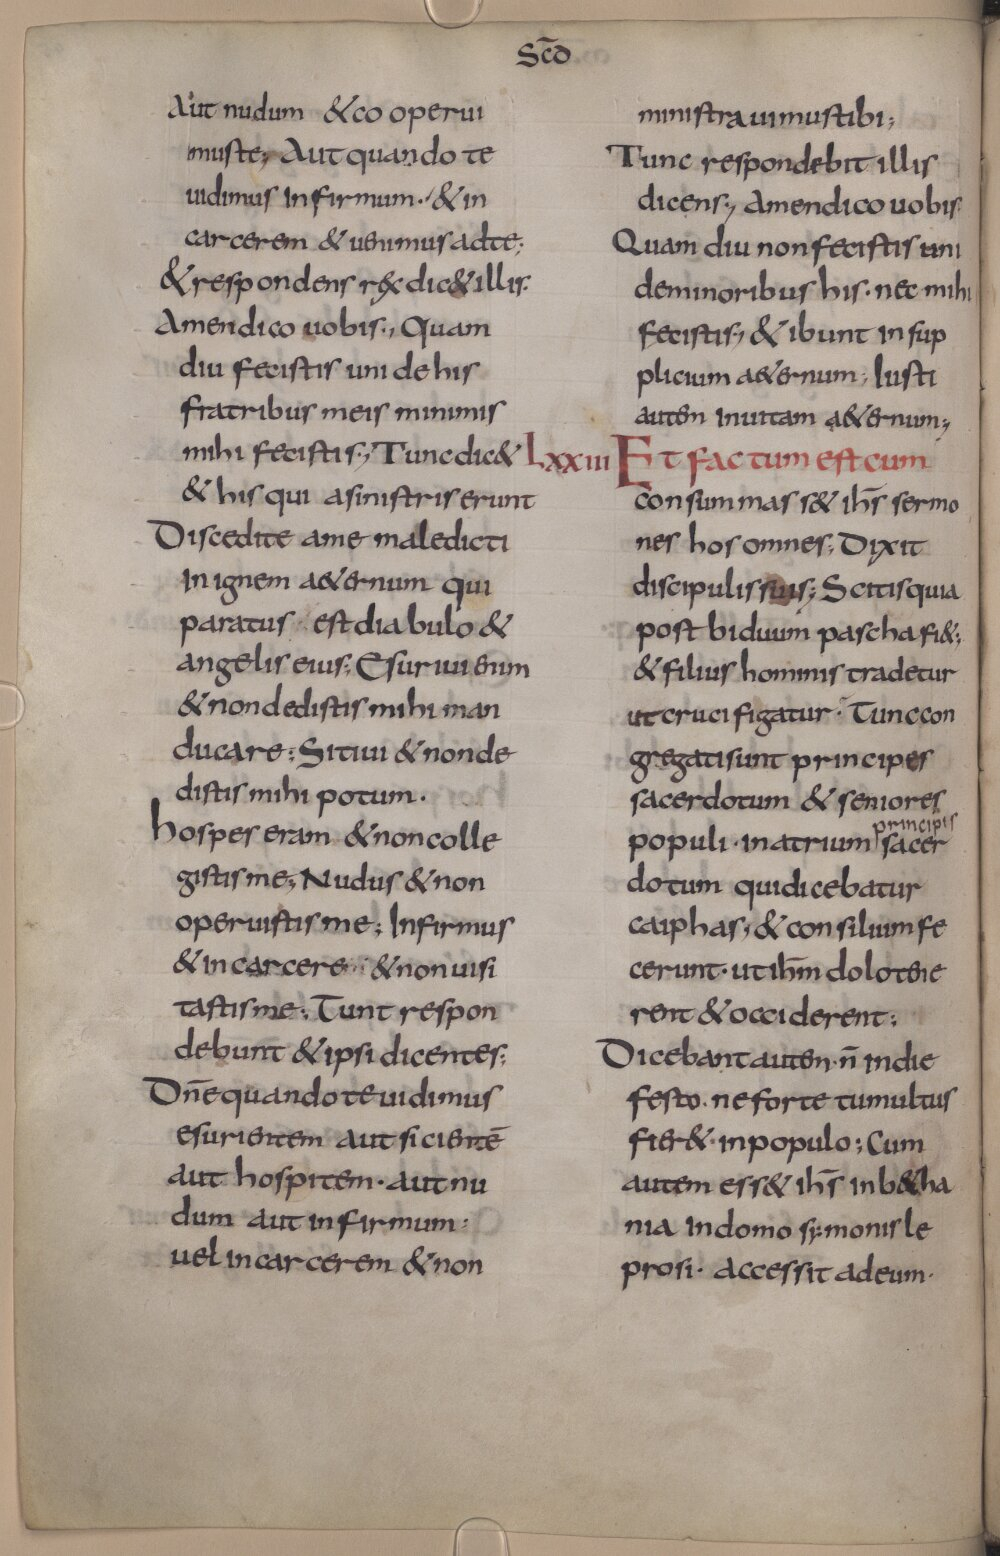 Scd̄
Aut nudum & co operui
muste; Aut quando te
uidimus infirmum · & in
carcerem & uenimus ad te;
& respondens rex dic& illis·
Amen dico uobis·, Quam
diu fecistis uni de his
fratribus meis minimis
mihi fecistis·, Tunc dic&
& his qui asinistris erunt
Discedite ame maledicti
in ignem a&ernum qui
paratus est diabulo &
angelis eius; Esuriui enim
& non dedistis mihi man
ducare; Sitiui & non de
distis mihi potum·
hospes eram & non colle
gistis me; Nudus & non
operuistis me; Infirmus
& in carcere & non uisi
tastis me; Tunt respon
debunt & ipsi dicentes;
Dn̄e quando te uidimus
esurientem aut sicientē
aut hospitem · aut nu
dum aut infirmum;
uel in carcerem & non
ministrauimus tibi;
Tunc respondebit illis
dicens; Amen dico uobis
Quam diu non fecistis uni
de minoribus his · nec mihi
fecistis; & ibunt in sup
plicium a&ernum; Iusti
autem in uitam a&ernum;
Lxxiii Et factum est cum
consummass& ih̄s sermo
nes hos omnes; Dixit
discipulis suis; Scitis quia
post biduum pascha fi&;
& filius hominis tradetur
ut cruci figatur · Tunc con
gregati sunt principes
sacerdotum & seniores
populi · in atrium principis sacer
dotum qui dicebatur
caiphas, & consilium fe
cerunt · ut ih̄m dolo tene
rent & occiderent;
Dicebant autem · n̄ in die
festo · ne forte tumultus
fier& · in populo; Cum
autem ess& ih̄s in b&ha
nia in domo symonis le
prosi · accessit ad eum ·